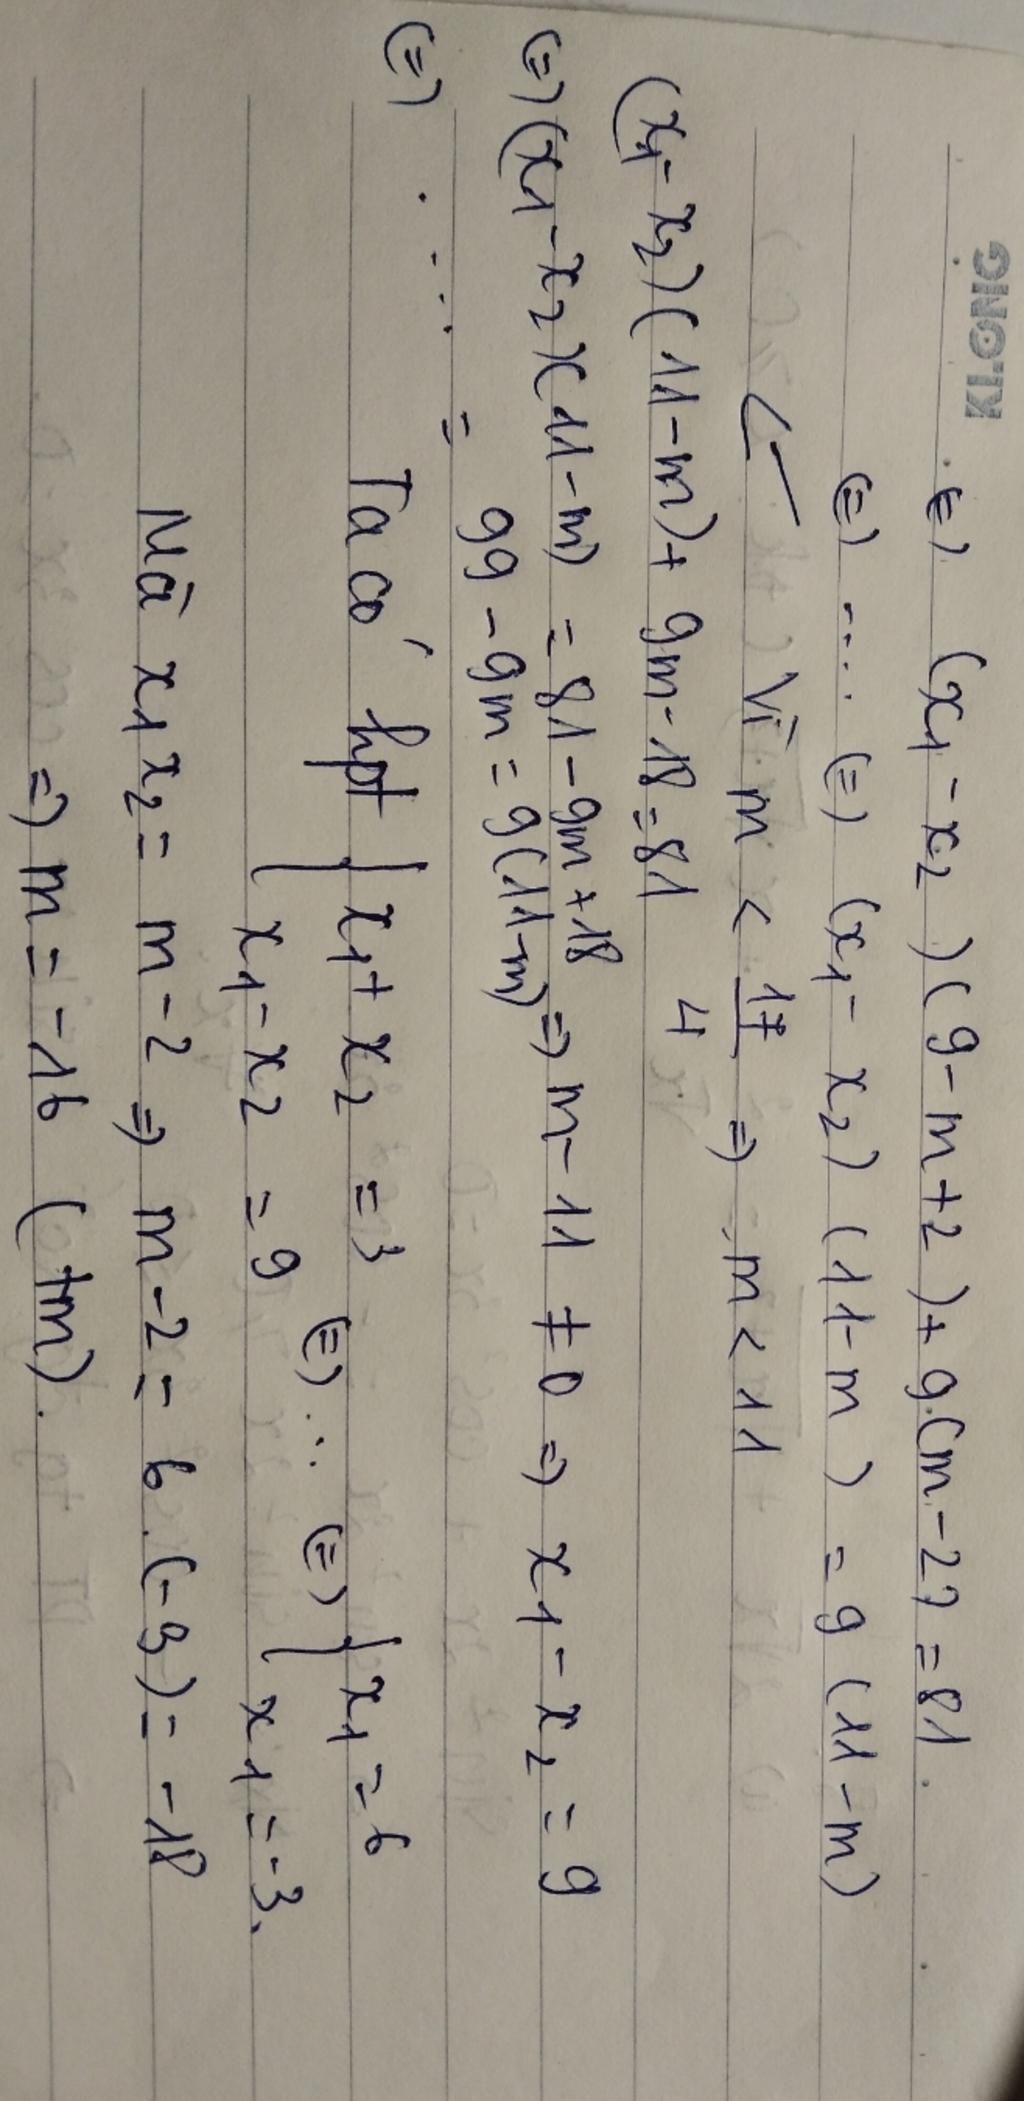 KLONG
(=) (x1 - x2)(9 - m + 2) + 9.(m - 2) = 81.
(=) ... (=) (x1 - x2)(11 - m) = 9(11 - m)
Vì m < 17/4 => m < 11
(x1 - x2)(11 - m) + 9m - 18 = 81
(=) (x1 - x2)(11 - m) = 81 - 9m + 18 => m - 11 ≠ 0 => x1 - x2 = 9
(=) . ... = 99 - 9m = 9(11 - m)
Ta có hpt { x1 + x2 = 3
x1 - x2 = 9 (=) ... (=) { x1 = 6
x1 = -3.
Mà x1x2 = m - 2 => m - 2 = 6.(-3) = -18
=> m = -16 (tm).